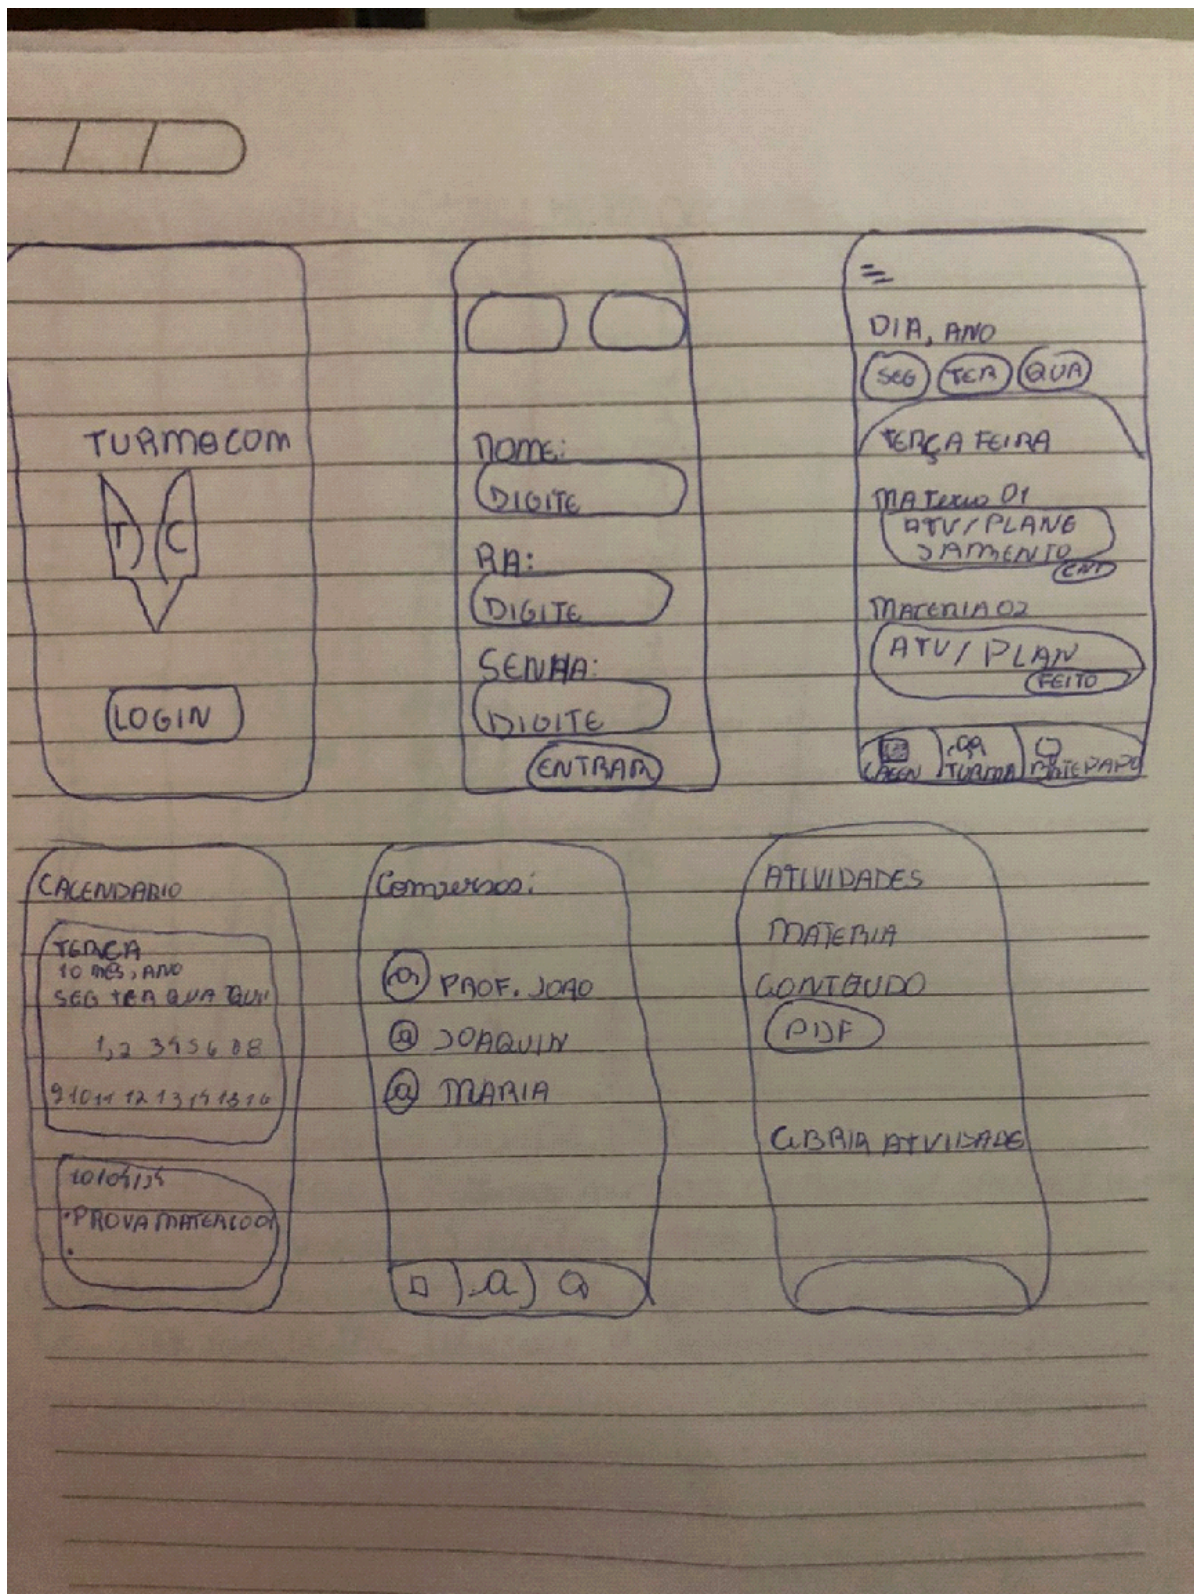 TURMACOM
T C
LOGIN
NOME:
DIGITE
RA:
DIGITE
SENHA:
DIGITE
ENTRAR
DIA, ANO
SEG TER QUA
TERÇA FEIRA
MATERIA 01
ATV/PLANE
JAMENTO
MATERIA 02
ATV/PLAN
FEITO
CALEN TURMA BATEPAPO
CALENDARIO
TERÇA
10 MÊS, ANO
SEG TER QUA QUI
1,2 3 4 5 6 7 8
9 10 11 12 13 14 15 16
• PROVA MATERIA 001
•
Conversas:
PROF. JOAO
JOAQUIN
MARIA
ATIVIDADES
MATERIA
CONTEUDO
PDF
ABRIR ATVIDADE